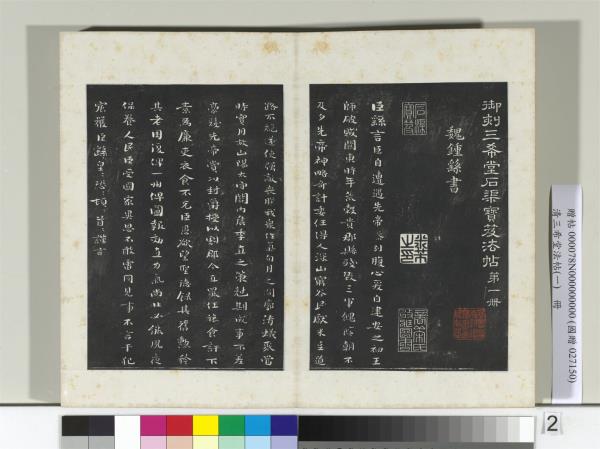 御刻三希堂石渠寶笈法帖第一冊
魏鍾繇書
臣繇言臣自遭遇先帝忝列腹心爰自建安之初王
師破賊關東時年荒穀貴郡縣殘毀三軍餽饟朝不
及夕先帝神略奇計委任得人深山窮谷民獻米豆道
路不絕遂使強敵喪膽我衆作氣旬月之間廓清蟻聚當
時實用故山陽太守關內侯季直之策剋期成事不差
豪髮先帝賞以封爵授以劇郡今直罷任旅食許下
素為廉吏衣食不充臣愚欲望聖德錄其舊勳矜
其老困復俾一州俾圖報効直力氣尚壯必能夙夜
保養人民臣受國家異恩不敢雷同見事不言干犯
宸嚴臣繇皇恐皇恐頓首頓首謹言
贈帖 000078N000000000 (國贈 027150)
清三希堂法帖(一) 冊
2